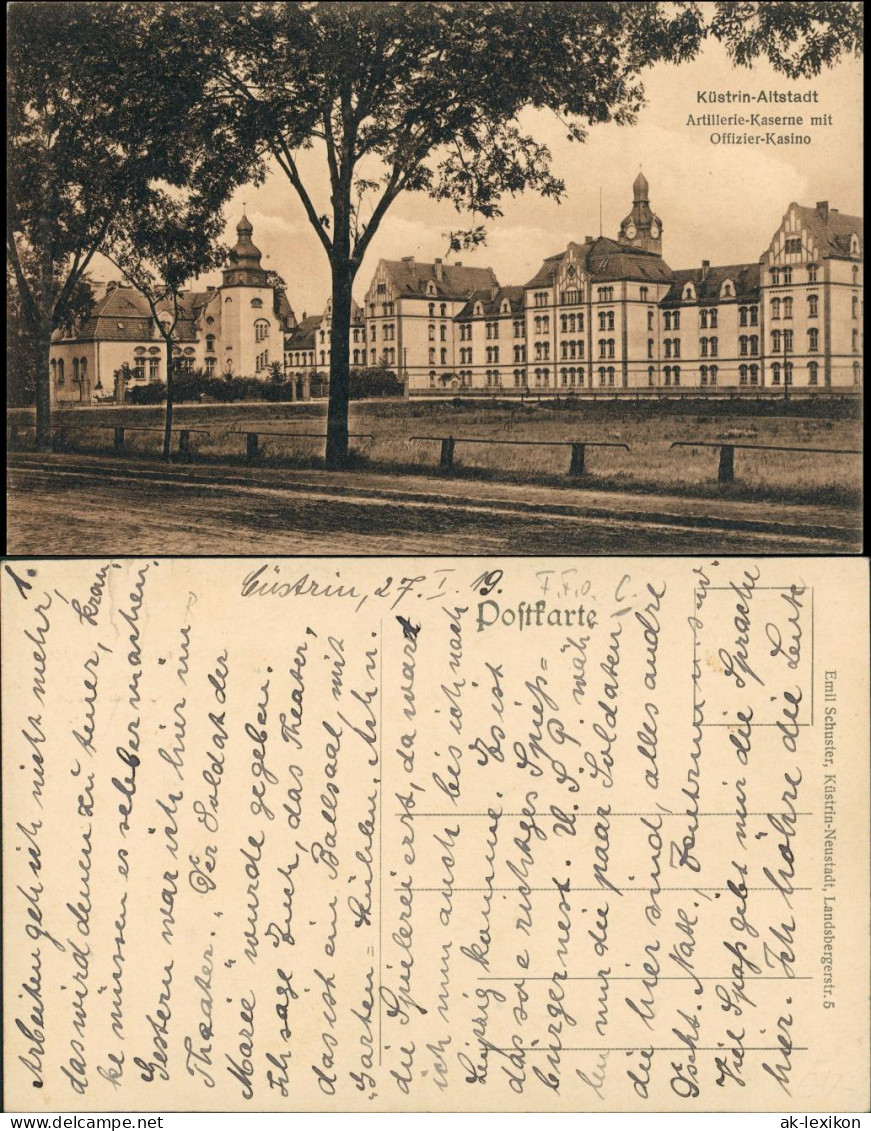 Küstrin-Altstadt
Artillerie-Kaserne mit
Offizier-Kasino
Cüstrin, 27. I. 19.
Postkarte
1.
Arbeiten geh ich nicht mehr,
das wird denen zu teuer, Kran-
ke müssen es selber machen.
Gestern war ich hier im
Theater. „Der Soldat der
Marie" wurde gegeben.
Ich sage Euch, das Theater,
das ist ein Ballsaal mit
Garten=Stühlen. Ach n.
die Spielerei erst, da wart
ich nun auch bis ich nach
Leipzig komme. Es ist
das so e richtges Spieß=
bürgernest. U.S.P. wäh
len nur die paar Soldaten
die hier sind, alles andre
Dscht. Natl., Zentrum usw.
Viel Spaß gibt mir die Sprache
hier. Ich höhre die Leute
Emil Schuster, Küstrin-Neustadt, Landsbergerstr. 5
ak-lexikon